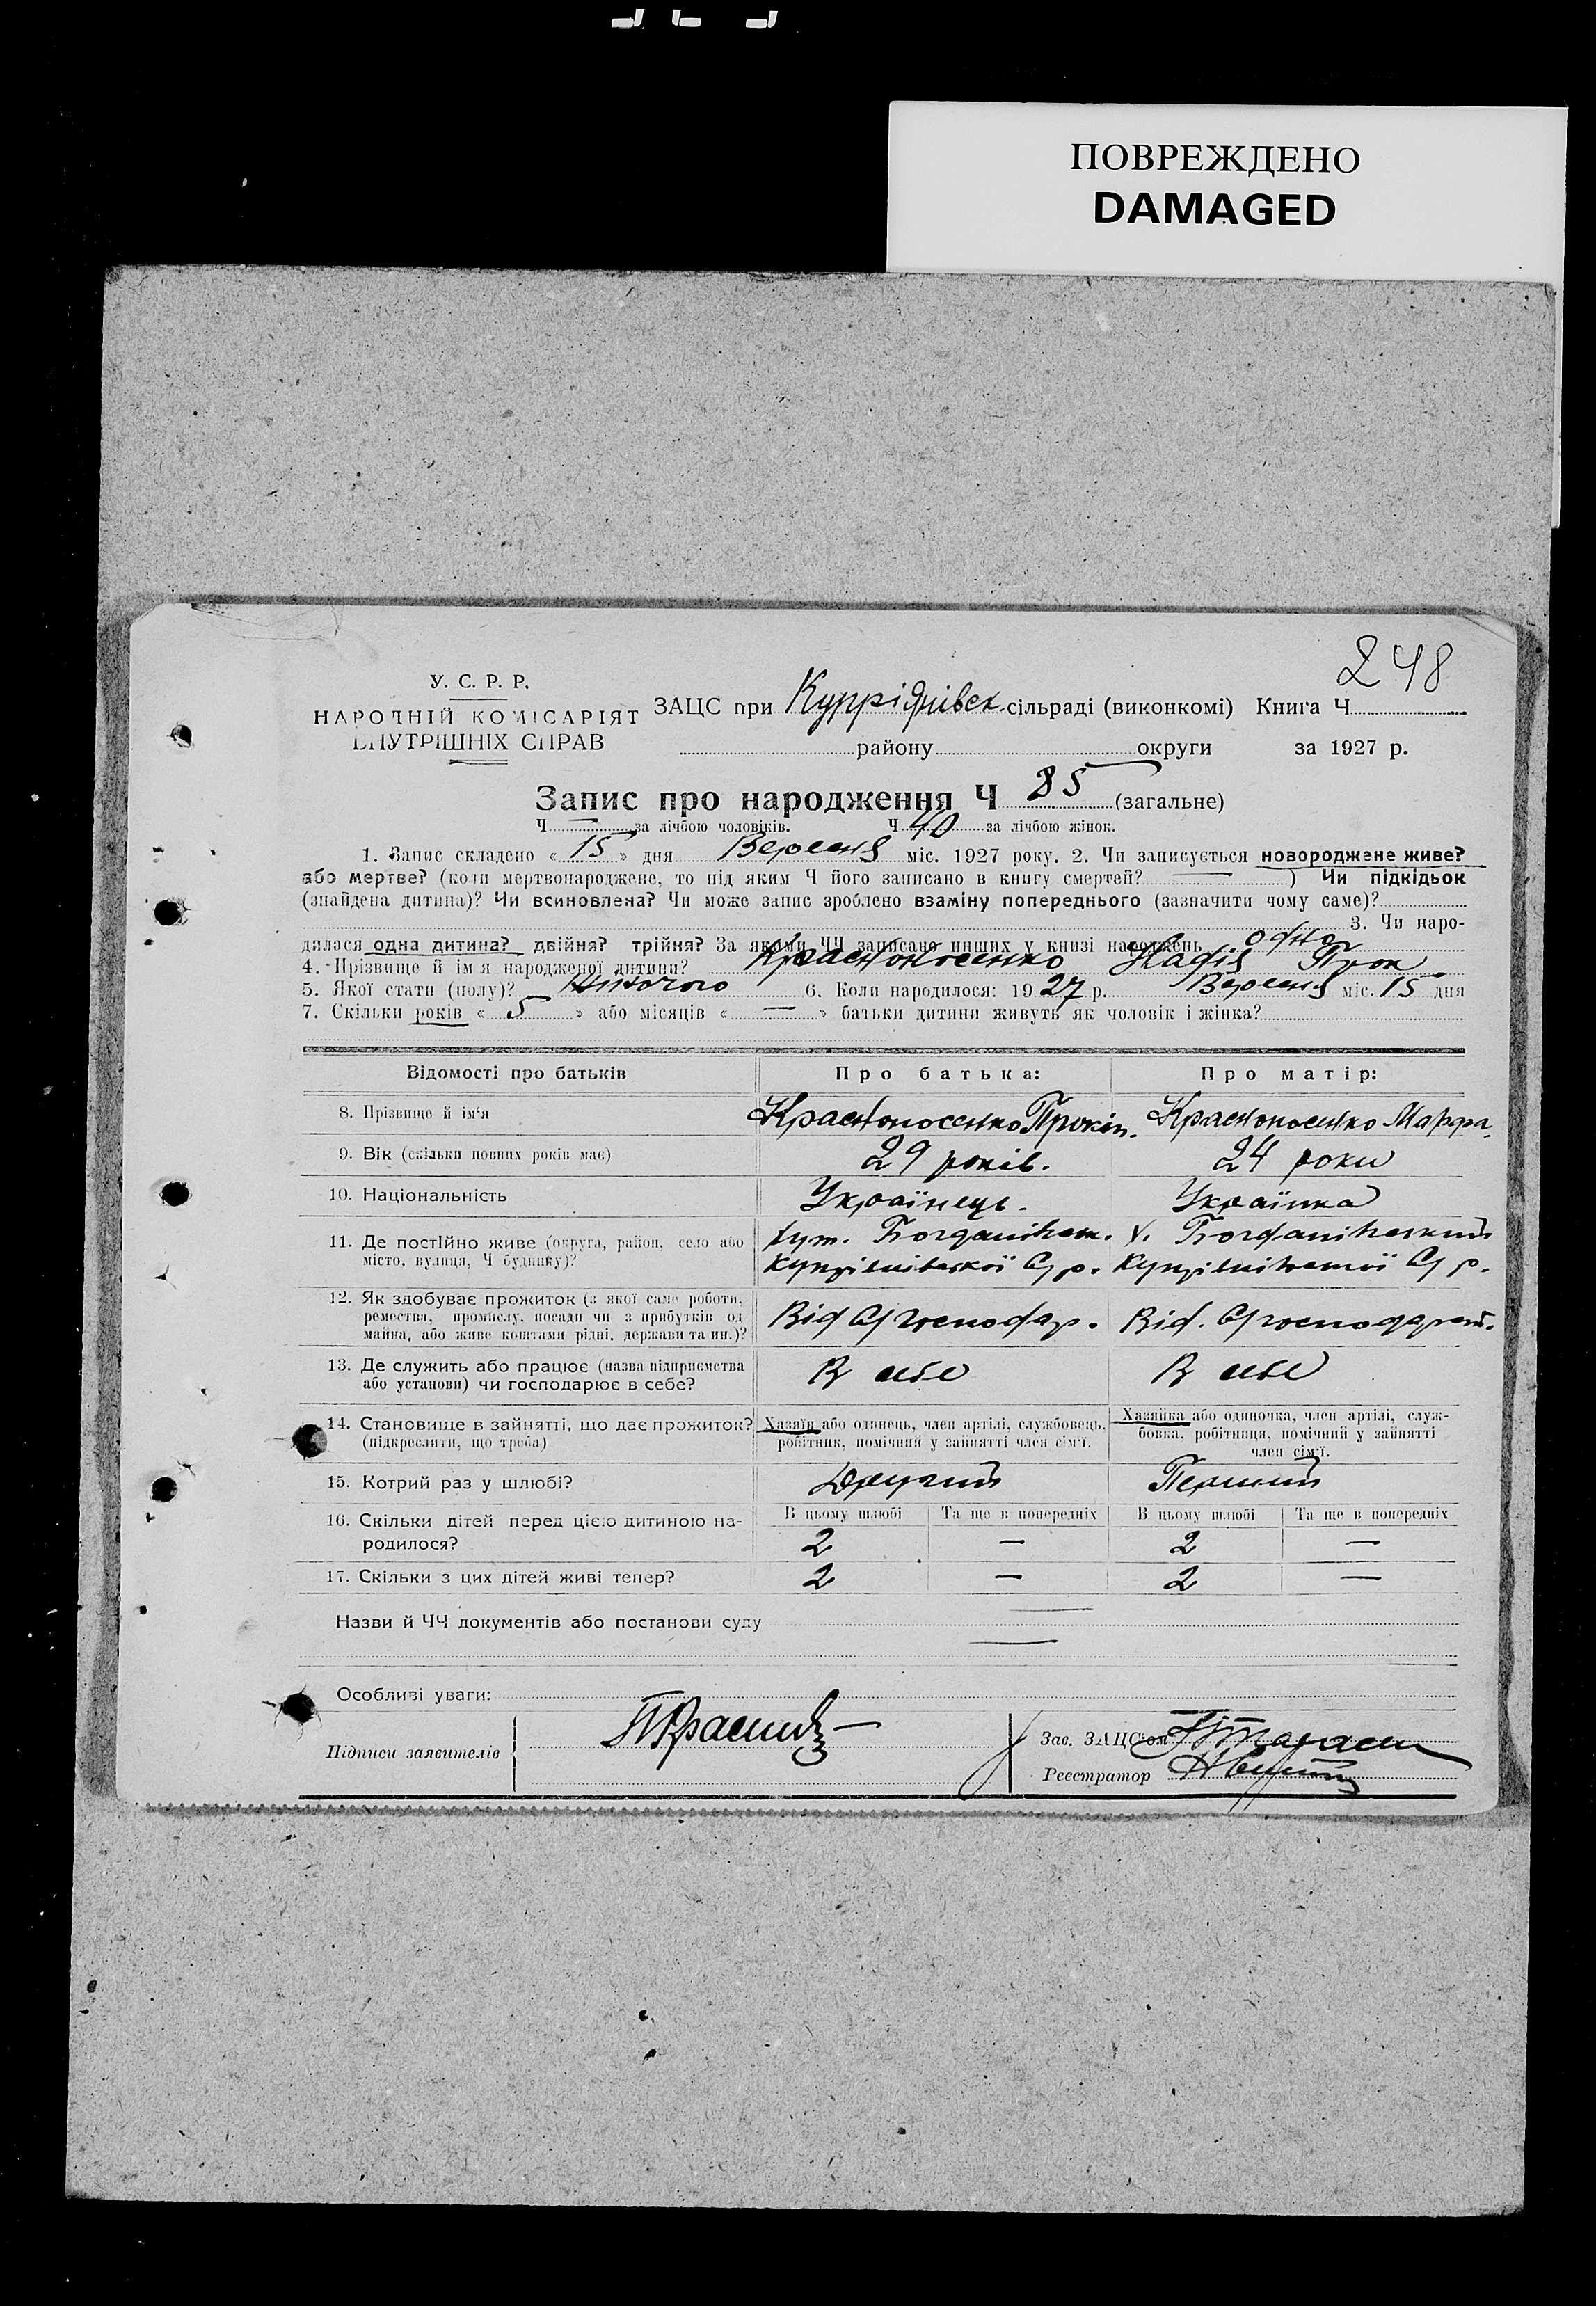 ПОВРЕЖДЕНО
DAMAGED
248
У. С. Р. Р.
НАРОДНІЙ КОМІСАРІЯТ
ВНУТРІШНІХ СПРАВ
ЗАЦС при сільраді (виконкомі) Книга Ч
району округи за 1927 р.
Запис про народження Ч 85 (загальне)
Ч — за лічбою чоловіків. Ч 40 за лічбою жінок.
1. Запис складено « 15 » дня Вересня міс. 1927 року. 2. Чи записується новороджене живе?
або мертве? (коли мертвонароджене, то під яким Ч його записано в книгу смертей? — ) Чи підкідьок
(знайдена дитина)? Чи всиновлена? Чи може запис зроблено взаміну попереднього (зазначити чому саме)?
3. Чи наро-
дилася одна дитина? двійня? трійня? За якими ЧЧ записано инших у книзі народжень одна
4. Прізвище й ім'я народженої дитини? Красноносенко Надія Прок
5. Якої стати (полу)? Жіночого 6. Коли народилося: 1927 р. Вересня міс. 15 дня
7. Скільки років « 5 » або місяців « — » батьки дитини живуть як чоловік і жінка?
Відомості про батьків Про батька: Про матір:
8. Прізвище й ім'я Красноносенко Прокіп. Красноносенко Марфа
9. Вік (скільки повних років має) 29 років. 24 роки
10. Національність Українець. Українка
11. Де постійно живе (округа, район, село або хут. х.
місто, вулиця, Ч будинку)? С/р. С/р.
12. Як здобуває прожиток (з якої саме роботи,
ремества, промислу, посади чи з прибутків од Від С/господар. Від. С/господарст.
майна, або живе коштами рідні, держави та ин.)?
13. Де служить або працює (назва підприємства В себе В себе
або установи) чи господарює в себе?
14. Становище в зайнятті, що дає прожиток? Хазяїн або одинець, член артілі, службовець, Хазяйка або одиночка, член артілі, служ-
(підкреслити, що треба) робітник, помічний у зайнятті член сім'ї. бовка, робітниця, помічний у зайнятті
член сім'ї.
15. Котрий раз у шлюбі? Другий Перший
16. Скільки дітей перед цією дитиною на- В цьому шлюбі Та ще в попередніх В цьому шлюбі Та ще в попередніх
родилося? 2 — 2 —
17. Скільки з цих дітей живі тепер? 2 — 2 —
Назви й ЧЧ документів або постанови суду —
—
Особливі уваги:
Підписи заявителів Зав. ЗАЦС'ом
Реєстратор